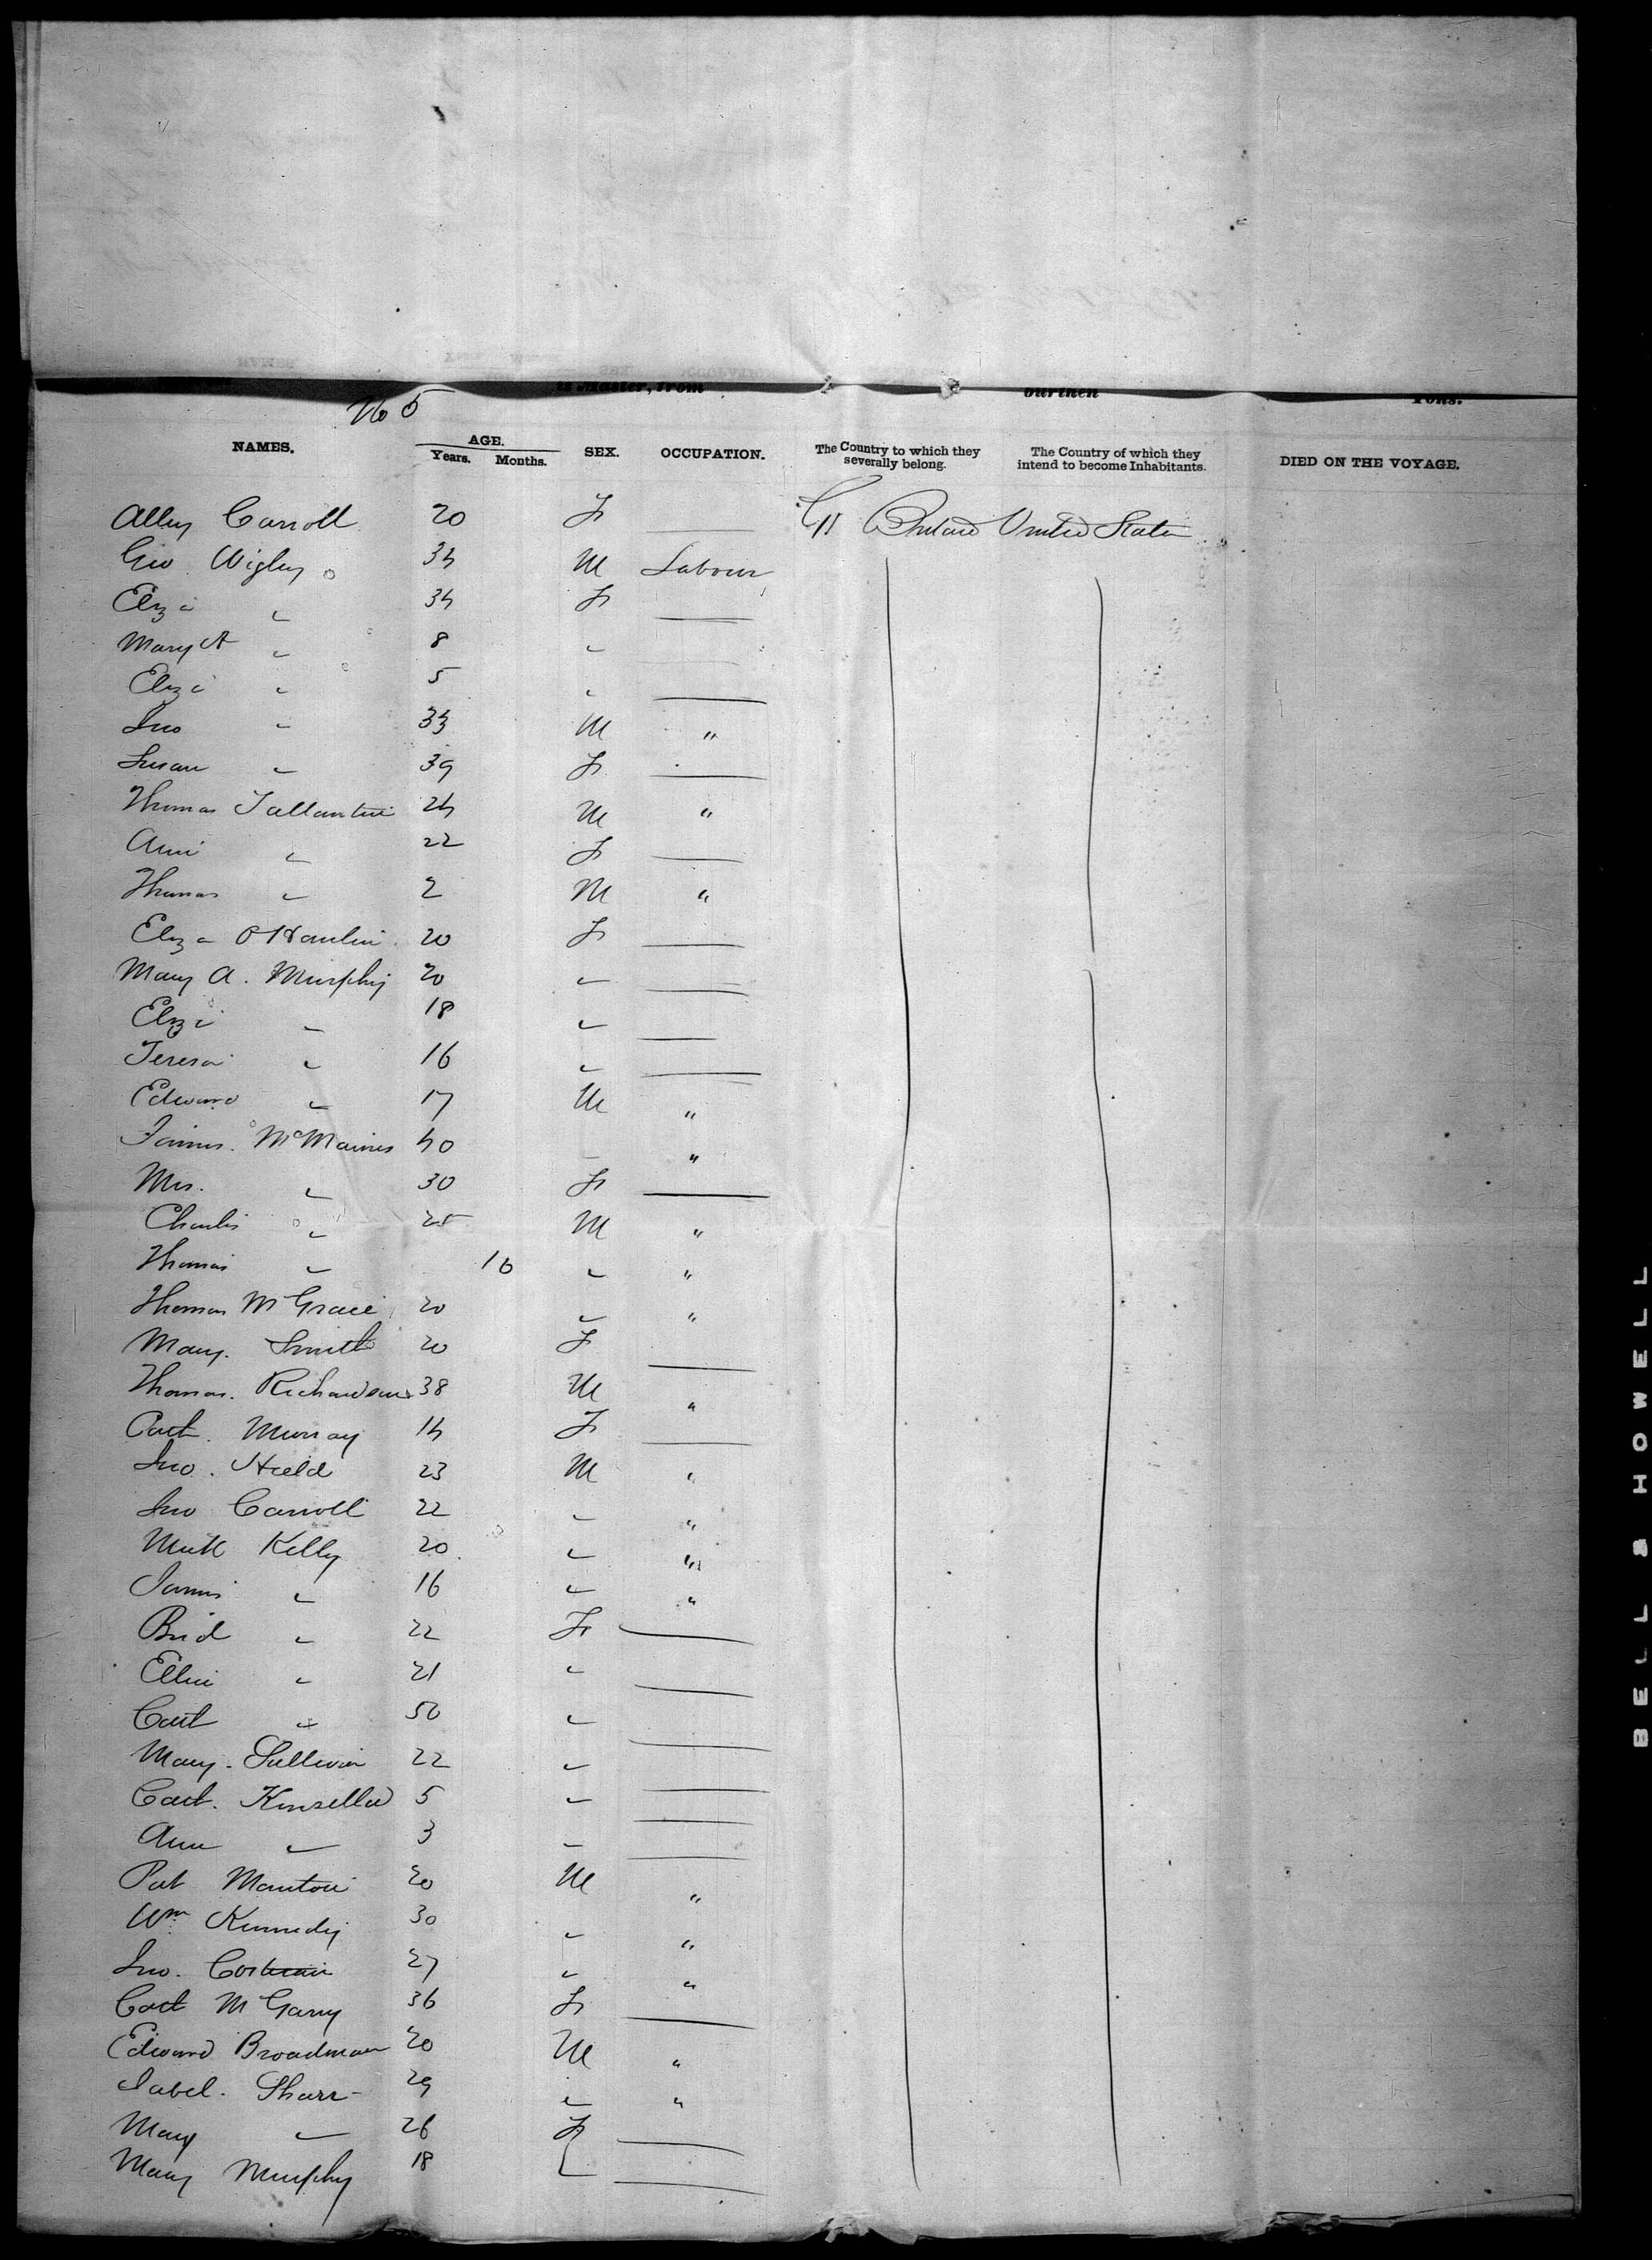 is Master, from burthen Tons.
No 5
NAMES. AGE. Years. Months. SEX. OCCUPATION. The Country to which they severally belong. The Country of which they intend to become Inhabitants. DIED ON THE VOYAGE.
Alley Carroll 20 F — Gt Britain United States
Geo Wigley 34 M Labour
Eliza " 34 F —
Mary A " 8 " —
Eliza " 5 " —
Jno " 33 M "
Susan " 39 F —
Thomas Tallantire 24 M "
Ann " 22 F —
Thomas " 2 M "
Eliza O Hanlin 20 F —
Mary A. Murphy 20 " —
Eliza " 18 " —
Teresa " 16 " —
Edward " 17 M "
James McManies 40 " "
Mrs. " 30 F —
Charles " 25 M "
Thomas " 10 " "
Thomas McGrace 20 " "
Mary. Smith 20 F —
Thomas. Richardson 38 M "
Cath. Murray 14 F —
Jno. Hield 23 M "
Jno Carroll 22 " "
Matt Kelly 20 " "
James " 16 " "
Brid " 22 F —
Ellen " 21 " —
Cath " 50 " —
Mary. Sullivan 22 " —
Cath. Kinsella 5 " —
Ann " 3 " —
Pat 20 M "
Wm Kennedy 30 " "
Jno. 27 " "
Cath McGarry 36 F —
Edward Broadman 20 M "
Isabel. Sharr 29 " "
Mary " 26 F —
Mary Murphy 18 " —
BELL & HOWELL